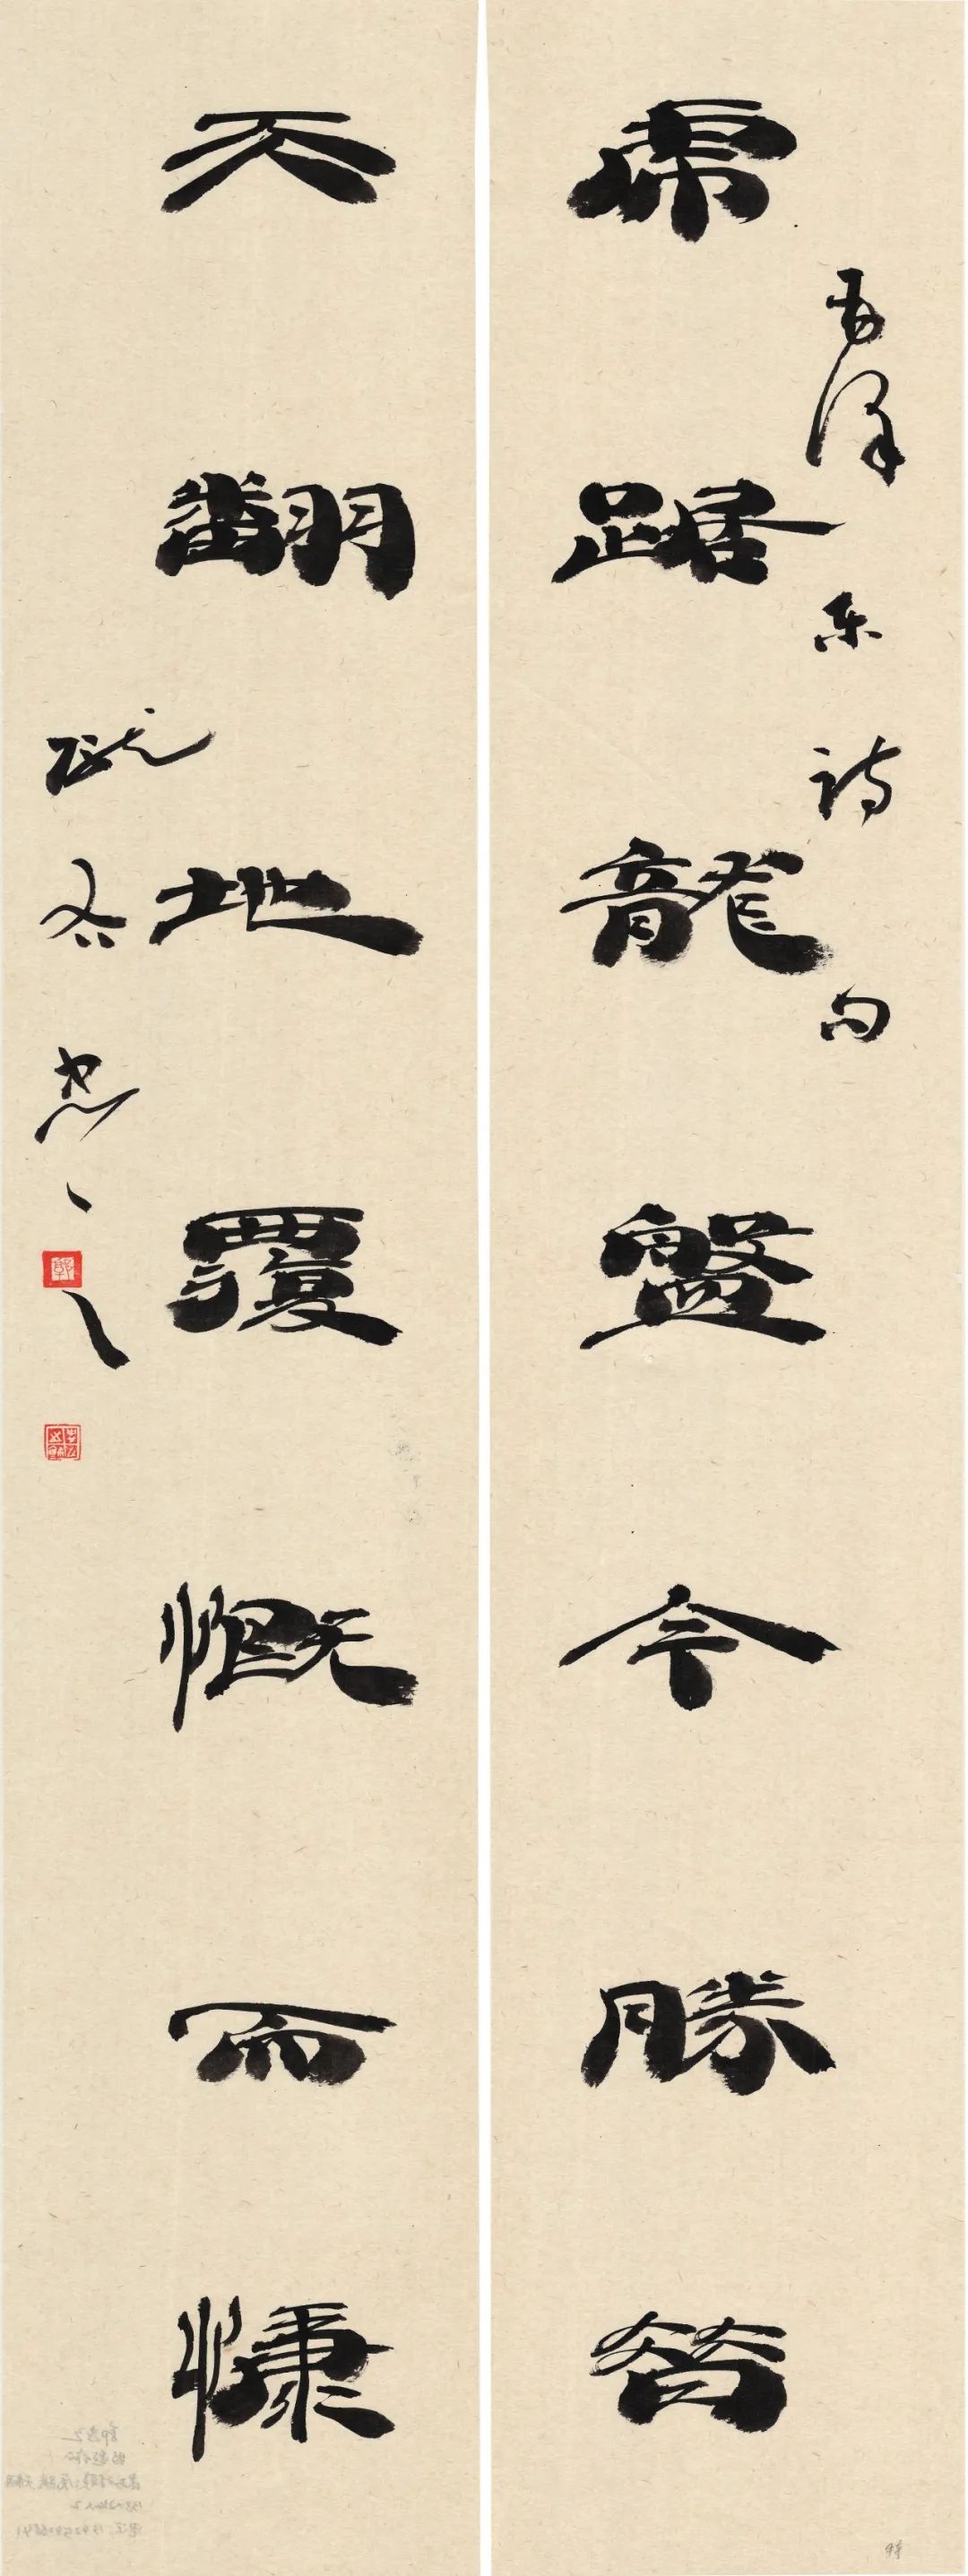 毛澤東詩句
虎踞龍盤今勝昔
天翻地覆慨而慷
冬